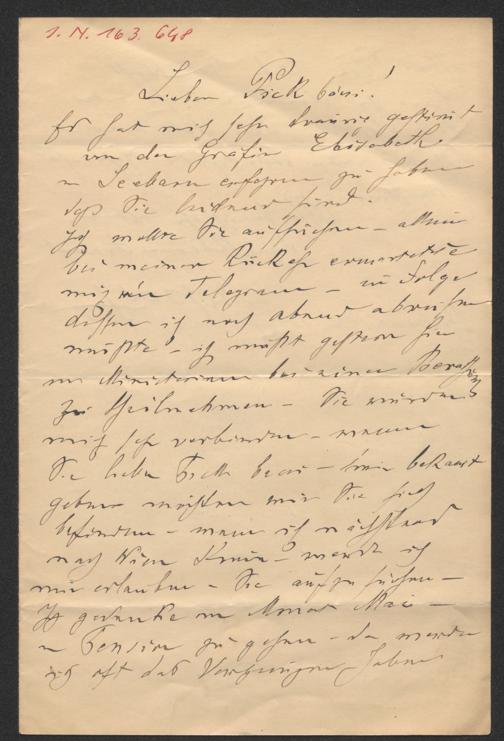 I. N. 163.648
Lieber Fick bácsi!
Es hat mich sehr traurig gestimt
von der Gräfin Elisabeth
in Seebarn erfahren zu haben
daß Sie leidend sind.
Ich wollte Sie aufsuchen – allein
bei meiner Rückkehr erwartete
mich ein Telegram – in Folge
dessen ich noch abends abreisen
mußte – ich mußte gestern hier
im Ministerium bei einer
zu Theilnehmen – Sie würden
mich sehr verbinden – wenn
Sie lieber Fick bacsi – bekannt
geben möchten wie Sie sich
befinden – wenn ich nächstens
nach Wien komme – werde ich
mir erlauben – Sie aufzusuchen –
Ich gedenke im Monat Mai –
in Pension zu gehen – da werde
ich oft das Vergnügen haben